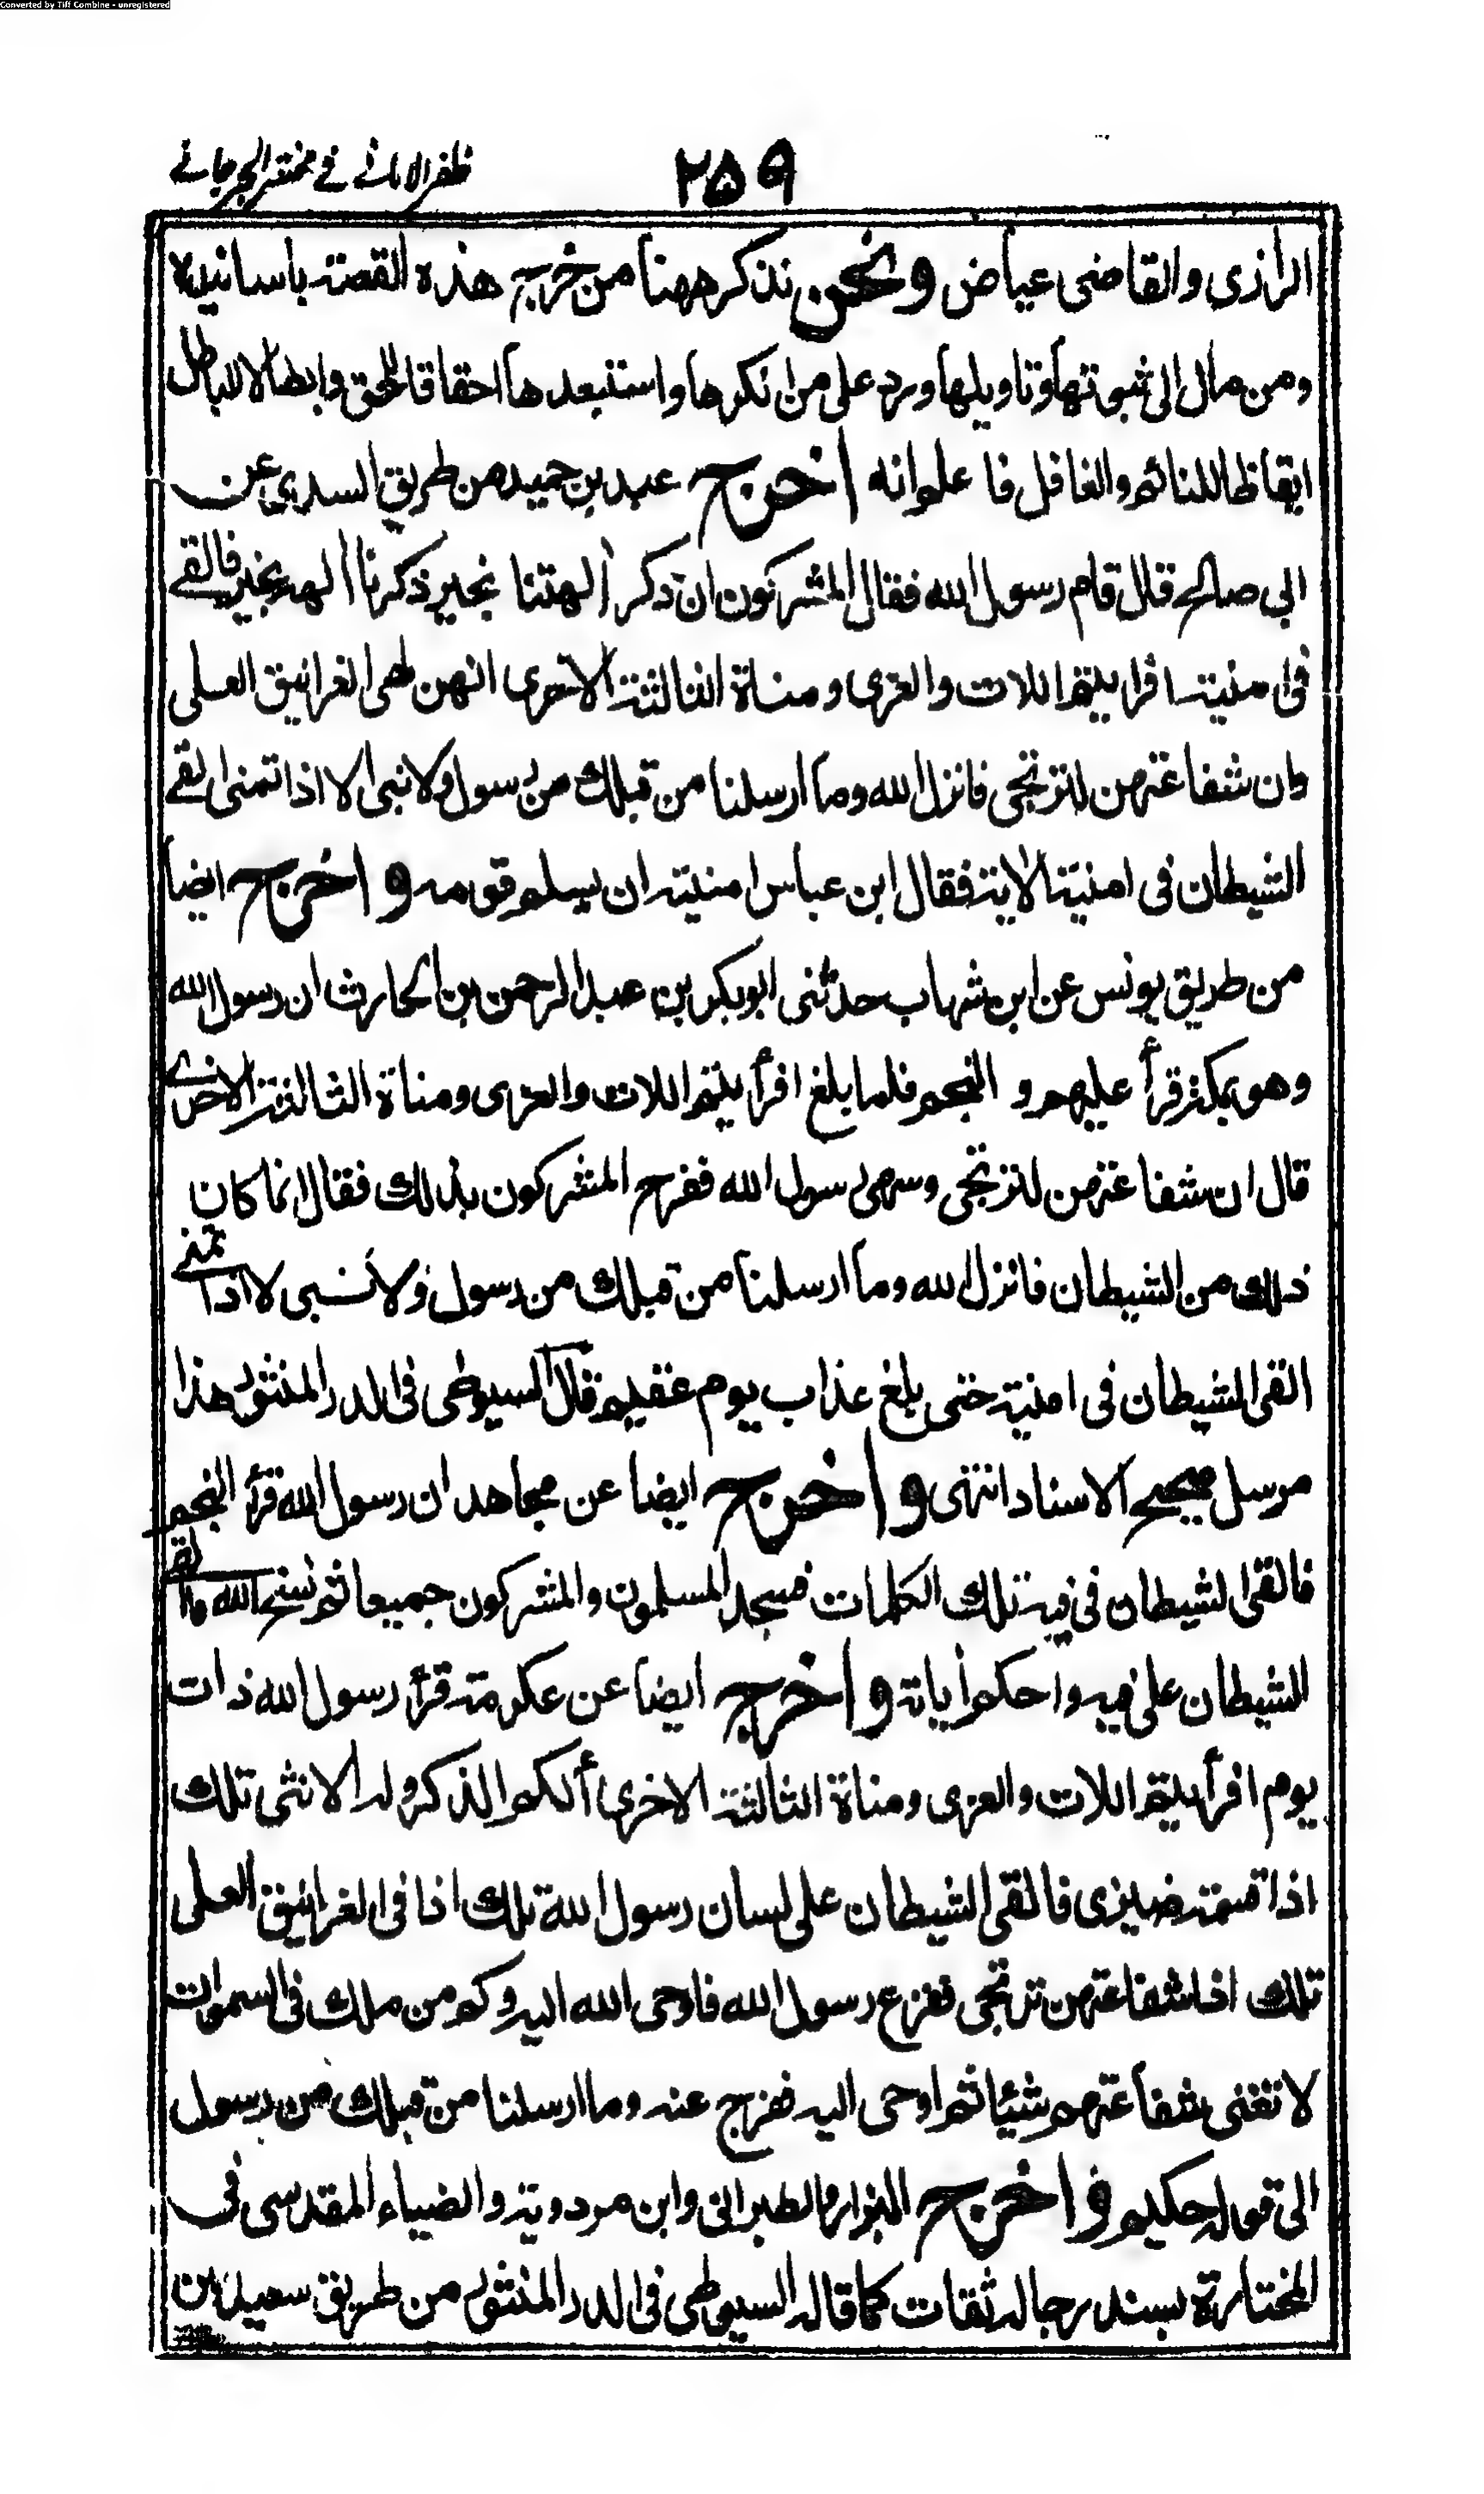 Converted by Tiff Combine - unregistered
ظفر الامانے فے مختصر الجرجانے
۲۵۹
الرازی والقاضی عیاض ونحن نذکر ههنا من خرج هذه القصة باسانیده
ومن مال الی ثبوتها وتاویلها ورد علی من انکرها واستبعدها احقاقا للحق وابطالا للباطل
ایقاظا للنائم والغافل فاعلم انه اخرج عبد بن حمید من طریق السدی عن
ابی صالح قال قام رسول الله فقال المشرکون ان ذکر الهتنا بخیر ذکرنا الهه بخیر فالقے
فی امنیته افرایتم اللات والعزی ومناة الثالثة الاخری انهن لهی الغرانیق العلی
وان شفاعتهن لترتجی فانزل الله وما ارسلنا من قبلك من رسول ولا نبی الا اذا تمنی القے
الشیطان فی امنیته الایة فقال ابن عباس امنیته ان یسلم قومه واخرج ایضا
من طریق یونس عن ابن شهاب حدثنی ابوبکر بن عبد الرحمن بن الحارث ان رسول الله
وهو بمکة قرأ علیهم و النجم فلما بلغ افرأیتم اللات والعزی ومناة الثالثة الاخرے
قال ان شفاعتهن لترتجی وسهی رسول الله ففرح المشرکون بذلك فقال انما کان
ذلك من الشیطان فانزل الله وما ارسلنا من قبلك من رسول ولا نبی الا اذا تمنے
القی الشیطان فی امنیته حتی بلغ عذاب یوم عقیم قال السیوطی فی الدر المنثور هذا
مرسل صحیح الاسناد انتهی واخرج ایضا عن مجاهد ان رسول الله قرأ النجم
فالقی الشیطان فی فیه تلك الکلمات فسجد المسلمون والمشرکون جمیعا ثم نسخ الله ما القے
الشیطان علی فیه واحکم أیاته واخرج ایضا عن عکرمة قرأ رسول الله ذات
یوم افرأیتم اللات والعزی ومناة الثالثة الاخری ألکم الذکر وله الانثی تلك
اذا قسمة ضیزی فالقی الشیطان علی لسان رسول الله تلك اذا فی الغرانیق العلی
تلك اذا شفاعتهن ترتجی ففزع رسول الله فاوحی الله الیه وکم من ملك فی السموات
لا تغنی شفاعتهم شیئا ثم اوحی الیه ففرج عنه وما ارسلنا من قبلك من رسول
الی قوله حکیم واخرج البزار والطبرانی وابن مردویة والضیاء المقدسی فی
المختارة بسند رجاله ثقات کما قاله السیوطی فی الدر المنثور من طریق سعید بن